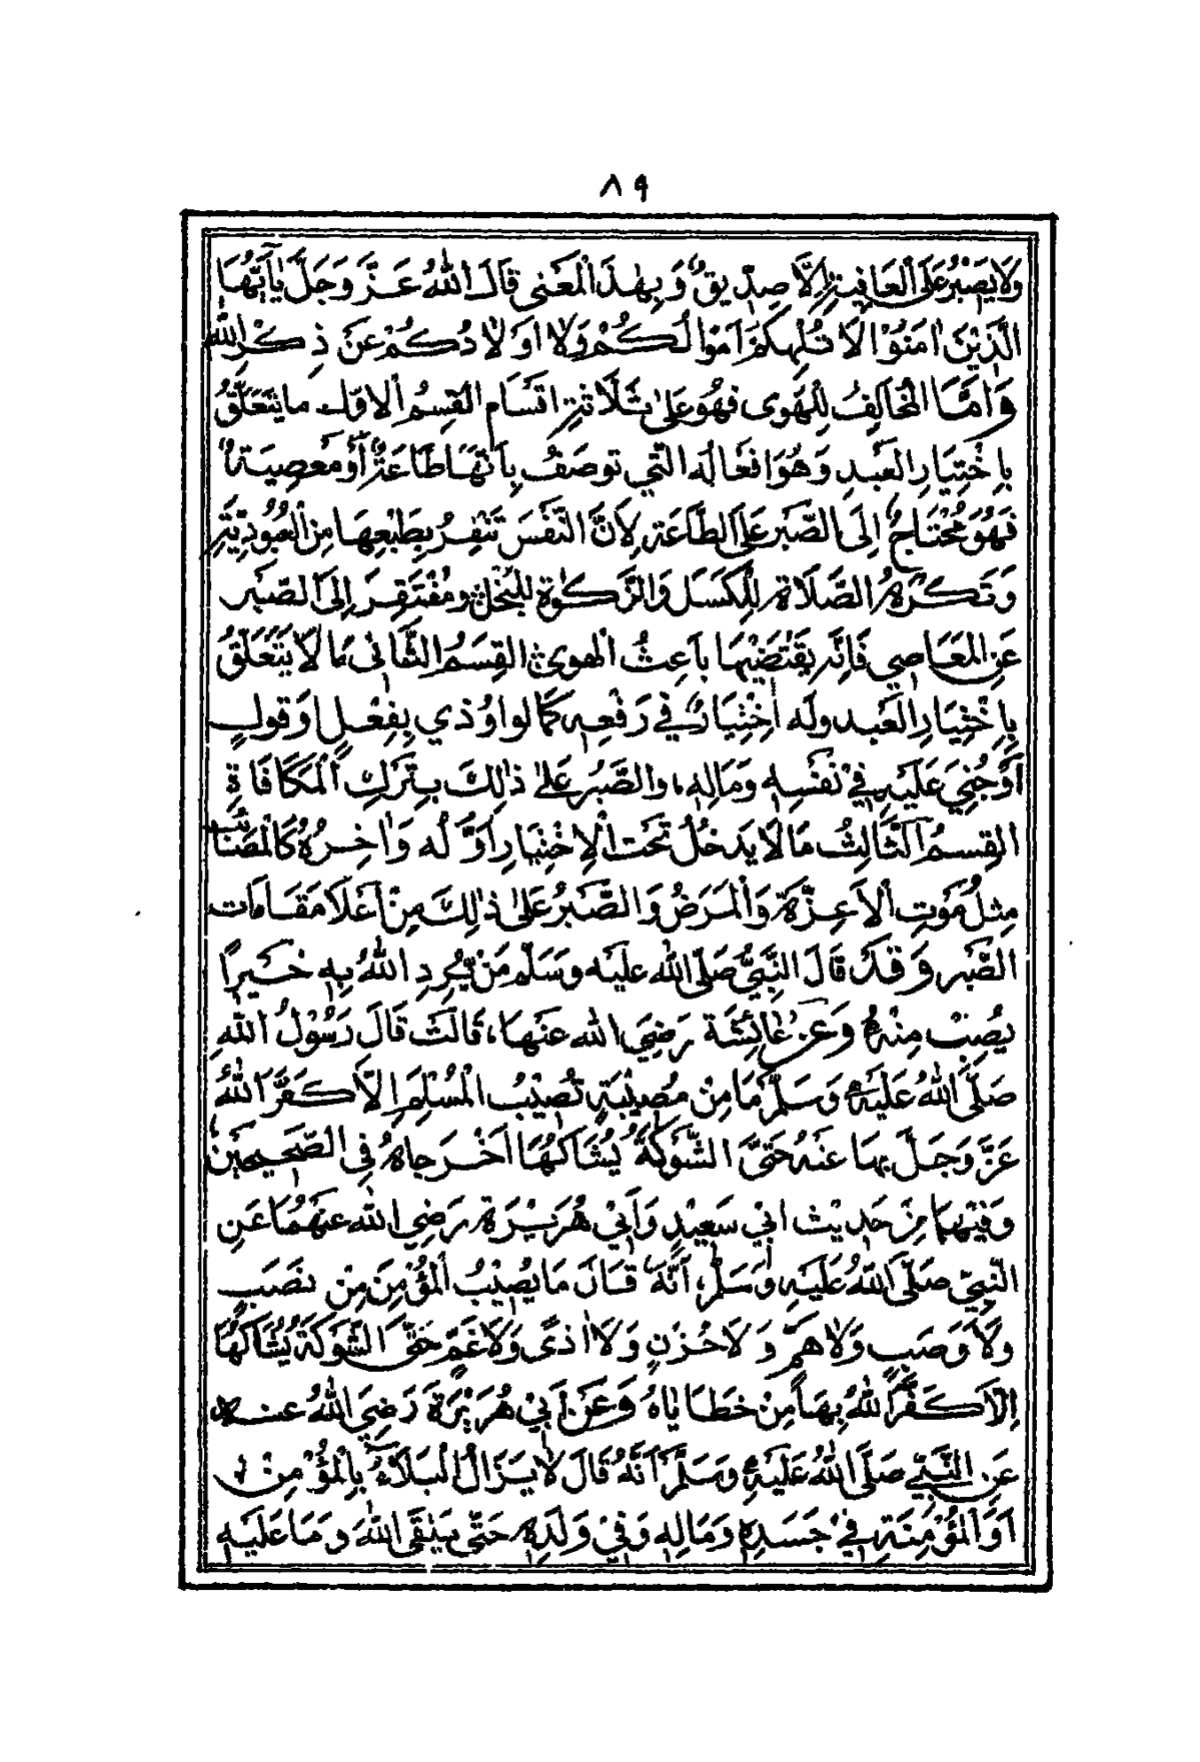 ٨٩
وَلَا يَصْبِرُ عَلَى الْعَافِيَةِ إِلَّا صِدِّيقٌ وَبِهٰذَا الْمَعْنٰى قَالَ اللّٰهُ عَزَّ وَجَلَّ يٰآ اَيُّهَا
الَّذِيْنَ اٰمَنُوْا لَا تُلْهِكُمْ اَمْوَالُكُمْ وَلَا اَوْلَادُكُمْ عَنْ ذِكْرِ اللّٰهِ
وَاَمَّا الْمُخَالِفُ لِلْهَوٰى فَهُوَ عَلٰى ثَلَاثَةِ اَقْسَامٍ الْقِسْمُ الْاَوَّلُ مَا يَتَعَلَّقُ
بِاِخْتِيَارِ الْعَبْدِ وَهُوَ اَفْعَالُه الَّتِي تُوصَفُ بِاَنَّهَا طَاعَةٌ اَوْ مَعْصِيَةٌ
فَهُوَ مُحْتَاجٌ اِلَى الصَّبْرِ عَلَى الطَّاعَةِ لِاَنَّ النَّفْسَ تَنْفِرُ بِطَبْعِهَا مِنَ الْعُبُوْدِيَّةِ
وَتَكْرَهُ الصَّلَاةَ لِلْكَسَلِ وَالزَّكٰوةَ لِلْبُخْلِ وَمُفْتَقِرٌ اِلَى الصَّبْرِ
عَنِ الْمَعَاصِي فَاِنَّه يَقْتَضِيْهَا بَاعِثُ الْهَوٰى الْقِسْمُ الثَّانِى مَا لَا يَتَعَلَّقُ
بِاِخْتِيَارِ الْعَبْدِ وَلَه اِخْتِيَارٌ فِي رَفْعِه كَمَا لَوْ اُوْذِي بِفِعْلٍ اَوْ قَوْلٍ
اَوْ جُنِيَ عَلَيْهِ فِيْ نَفْسِه وَمَالِه، وَالصَّبْرُ عَلٰى ذٰلِكَ بِتَرْكِ الْمُكَافَاةِ
الْقِسْمُ الثَّالِثُ مَا لَا يَدْخُلُ تَحْتَ الْاِخْتِيَارِ اَوَّلُه وَاٰخِرُهُ كَالْمَصَائِبِ
مِثْلُ مَوْتِ الْاَعِزَّةِ وَالْمَرَضِ وَالصَّبْرُ عَلٰى ذٰلِكَ مِنْ اَعْلَا مَقَامَاتِ
الصَّبْرِ وَقَدْ قَالَ النَّبِيُّ صَلَّى اللّٰه عَلَيْه وَسَلَّمَ مَنْ يُّرِدِ اللّٰهُ بِه خَيْرًا
يُصِبْ مِنْهُ وَعَنْ عَائِشَةَ رَضِيَ اللّٰه عَنْهَا، قَالَتْ قَالَ رَسُوْلُ اللّٰهِ
صَلَّى اللّٰهُ عَلَيْهِ وَسَلَّمَ مَا مِنْ مُصِيْبَةٍ تُصِيْبُ الْمُسْلِمَ اِلَّا كَفَّرَ اللّٰهُ
عَزَّ وَجَلَّ بِهَا عَنْهُ حَتَّى الشَّوْكَةُ يُشَاكُهَا اَخْرَجَاهُ فِى الصَّحِيْحَيْنِ
وَفِيْهِمَا مِنْ حَدِيْثِ اَبِيْ سَعِيْدٍ وَاَبِيْ هُرَيْرَةَ رَضِيَ اللّٰه عَنْهُمَا عَنِ
النَّبِيِّ صَلَّى اللّٰهُ عَلَيْهِ وَسَلَّمَ، اَنَّهُ قَالَ مَا يُصِيْبُ الْمُؤْمِنَ مِنْ نَصَبٍ
وَلَا وَصَبٍ وَلَا هَمٍّ وَلَا حُزْنٍ وَلَا اَذًى وَلَا غَمٍّ حَتَّى الشَّوْكَةُ يُشَاكُهَا
اِلَّا كَفَّرَ اللّٰهُ بِهَا مِنْ خَطَايَاهُ وَعَنْ اَبِيْ هُرَيْرَةَ رَضِيَ اللّٰهُ عنه
عَنِ النَّبِيِّ صَلَّى اللّٰهُ عَلَيْهِ وَسَلَّمَ اَنَّهُ قَالَ لَا يَزَالُ الْبَلَاءُ بِالْمُؤْمِنِ
اَوِ الْمُؤْمِنَةِ فِيْ جَسَدِه وَمَالِه وَفِيْ وَلَدِه حَتّٰى يَلْقَى اللّٰهَ وَمَا عَلَيْهِ